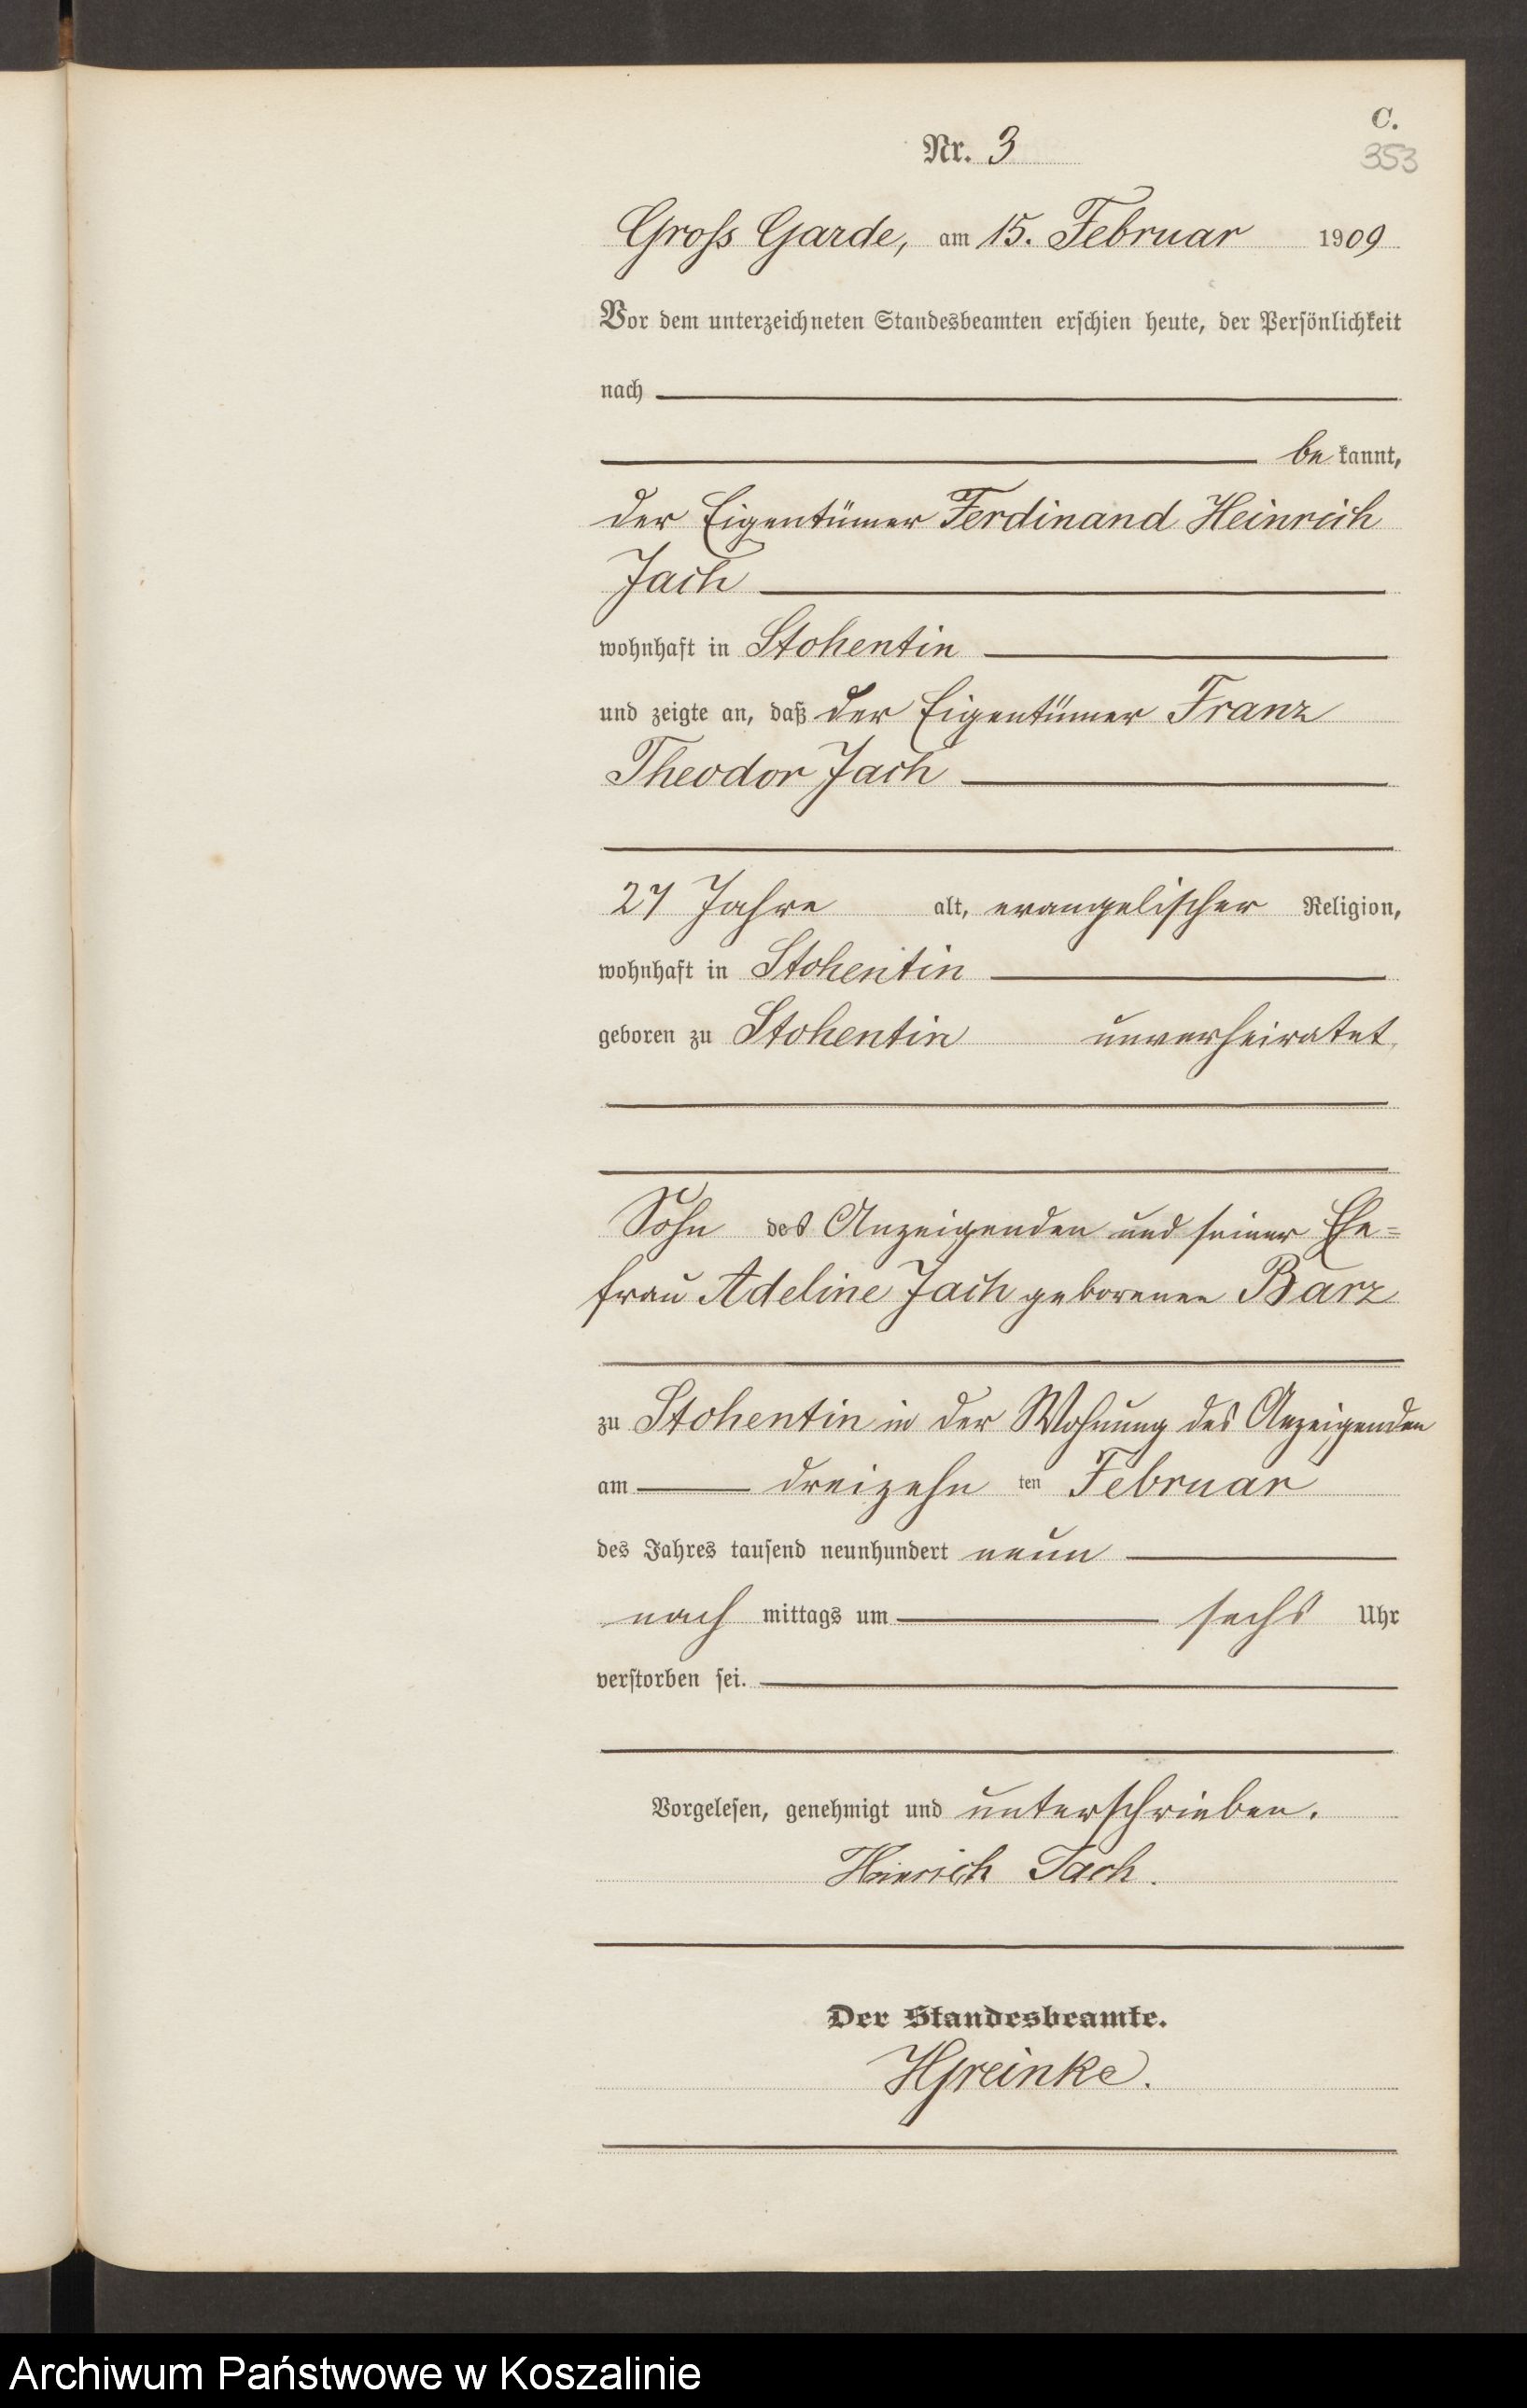 C.
Nr. 3
353
Gross Garde, am 15. Februar 1909
Vor dem unterzeichneten Standesbeamten erschien heute, der Persönlichkeit
nach
be kannt,
der Eigentümer Ferdinand Heinrich
Jach
wohnhaft in Stohentin
und zeigte an, daß der Eigentümer Franz
Theodor Jach
27 Jahre alt, evangelischer Religion,
wohnhaft in Stohentin
geboren zu Stohentin unverheiratet,
Sohn des Anzeigenden und seiner Ehe=
frau Adeline Jach geborenen Barz
zu Stohentin in der Wohnung des Anzeigenden
am dreizehn ten Februar
des Jahres tausend neunhundert neun
nach mittags um sechs Uhr
verstorben sei.
Vorgelesen, genehmigt und unterschrieben.
Heinrich Jach.
Der Standesbeamte.
HGreinke.
Archiwum Państwowe w Koszalinie